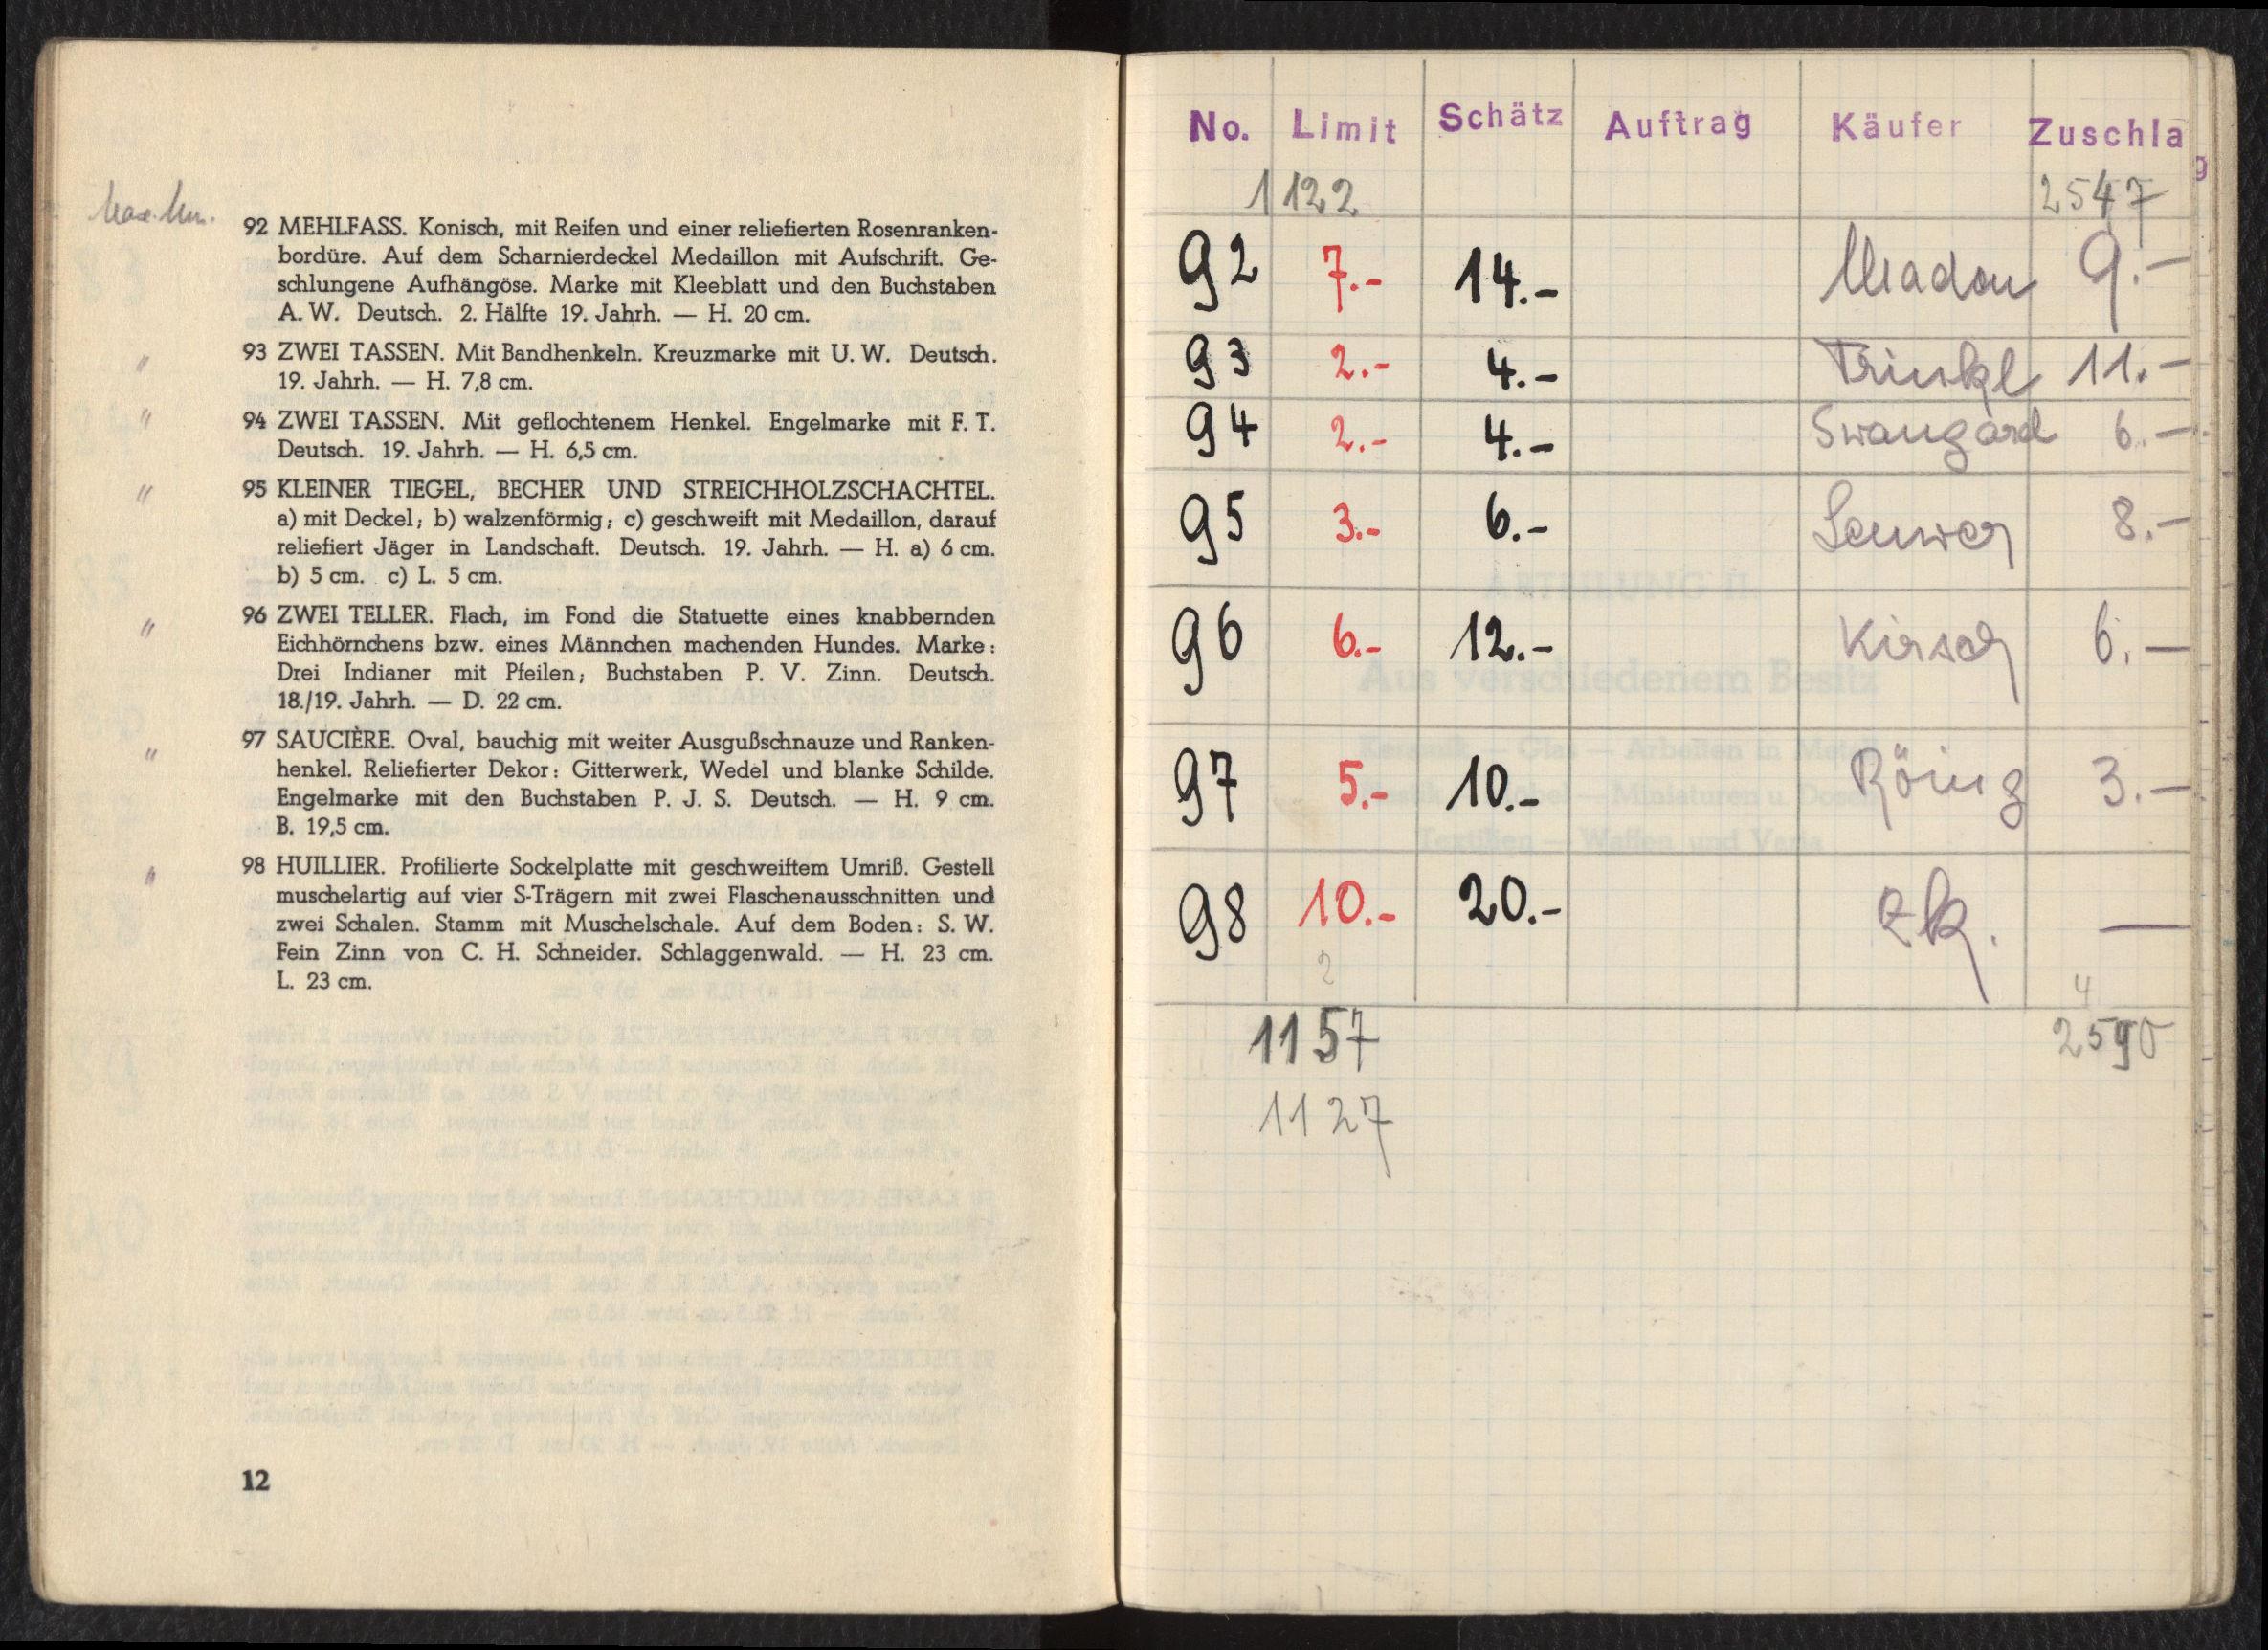 92 MEHLFASS. Konisch, mit Reifen und einer reliefierten Rosenranken-
bordüre. Auf dem Scharnierdeckel Medaillon mit Aufschrift. Ge-
schlungene Aufhängöse. Marke mit Kleeblatt und den Buchstaben
A. W. Deutsch. 2. Hälfte 19. Jahrh. — H. 20 cm.
" 93 ZWEI TASSEN. Mit Bandhenkeln. Kreuzmarke mit U. W. Deutsch.
19. Jahrh. — H. 7,8 cm.
" 94 ZWEI TASSEN. Mit geflochtenem Henkel. Engelmarke mit F. T.
Deutsch. 19. Jahrh. — H. 6,5 cm.
" 95 KLEINER TIEGEL, BECHER UND STREICHHOLZSCHACHTEL.
a) mit Deckel; b) walzenförmig; c) geschweift mit Medaillon, darauf
reliefiert Jäger in Landschaft. Deutsch. 19. Jahrh. — H. a) 6 cm.
b) 5 cm. c) L. 5 cm.
" 96 ZWEI TELLER. Flach, im Fond die Statuette eines knabbernden
Eichhörnchens bzw. eines Männchen machenden Hundes. Marke:
Drei Indianer mit Pfeilen; Buchstaben P. V. Zinn. Deutsch.
18./19. Jahrh. — D. 22 cm.
" 97 SAUCIÈRE. Oval, bauchig mit weiter Ausgußschnauze und Ranken-
henkel. Reliefierter Dekor: Gitterwerk, Wedel und blanke Schilde.
Engelmarke mit den Buchstaben P. J. S. Deutsch. — H. 9 cm.
B. 19,5 cm.
" 98 HUILLIER. Profilierte Sockelplatte mit geschweiftem Umriß. Gestell
muschelartig auf vier S-Trägern mit zwei Flaschenausschnitten und
zwei Schalen. Stamm mit Muschelschale. Auf dem Boden: S. W.
Fein Zinn von C. H. Schneider. Schlaggenwald. — H. 23 cm.
L. 23 cm.
12
No. Limit Schätz Auftrag Käufer Zuschlag
1122 2547
92 7.- 14.- 9.-
93 2.- 4.- Trinkl 11.-
94 2.- 4.- Swangard 6.-
95 3.- 6.- 8.-
96 6.- 12.- Kirsch 6.-
97 5.- 10.- Röing 3.-
98 10.- 20.- —
2 4
1157 2590
1127